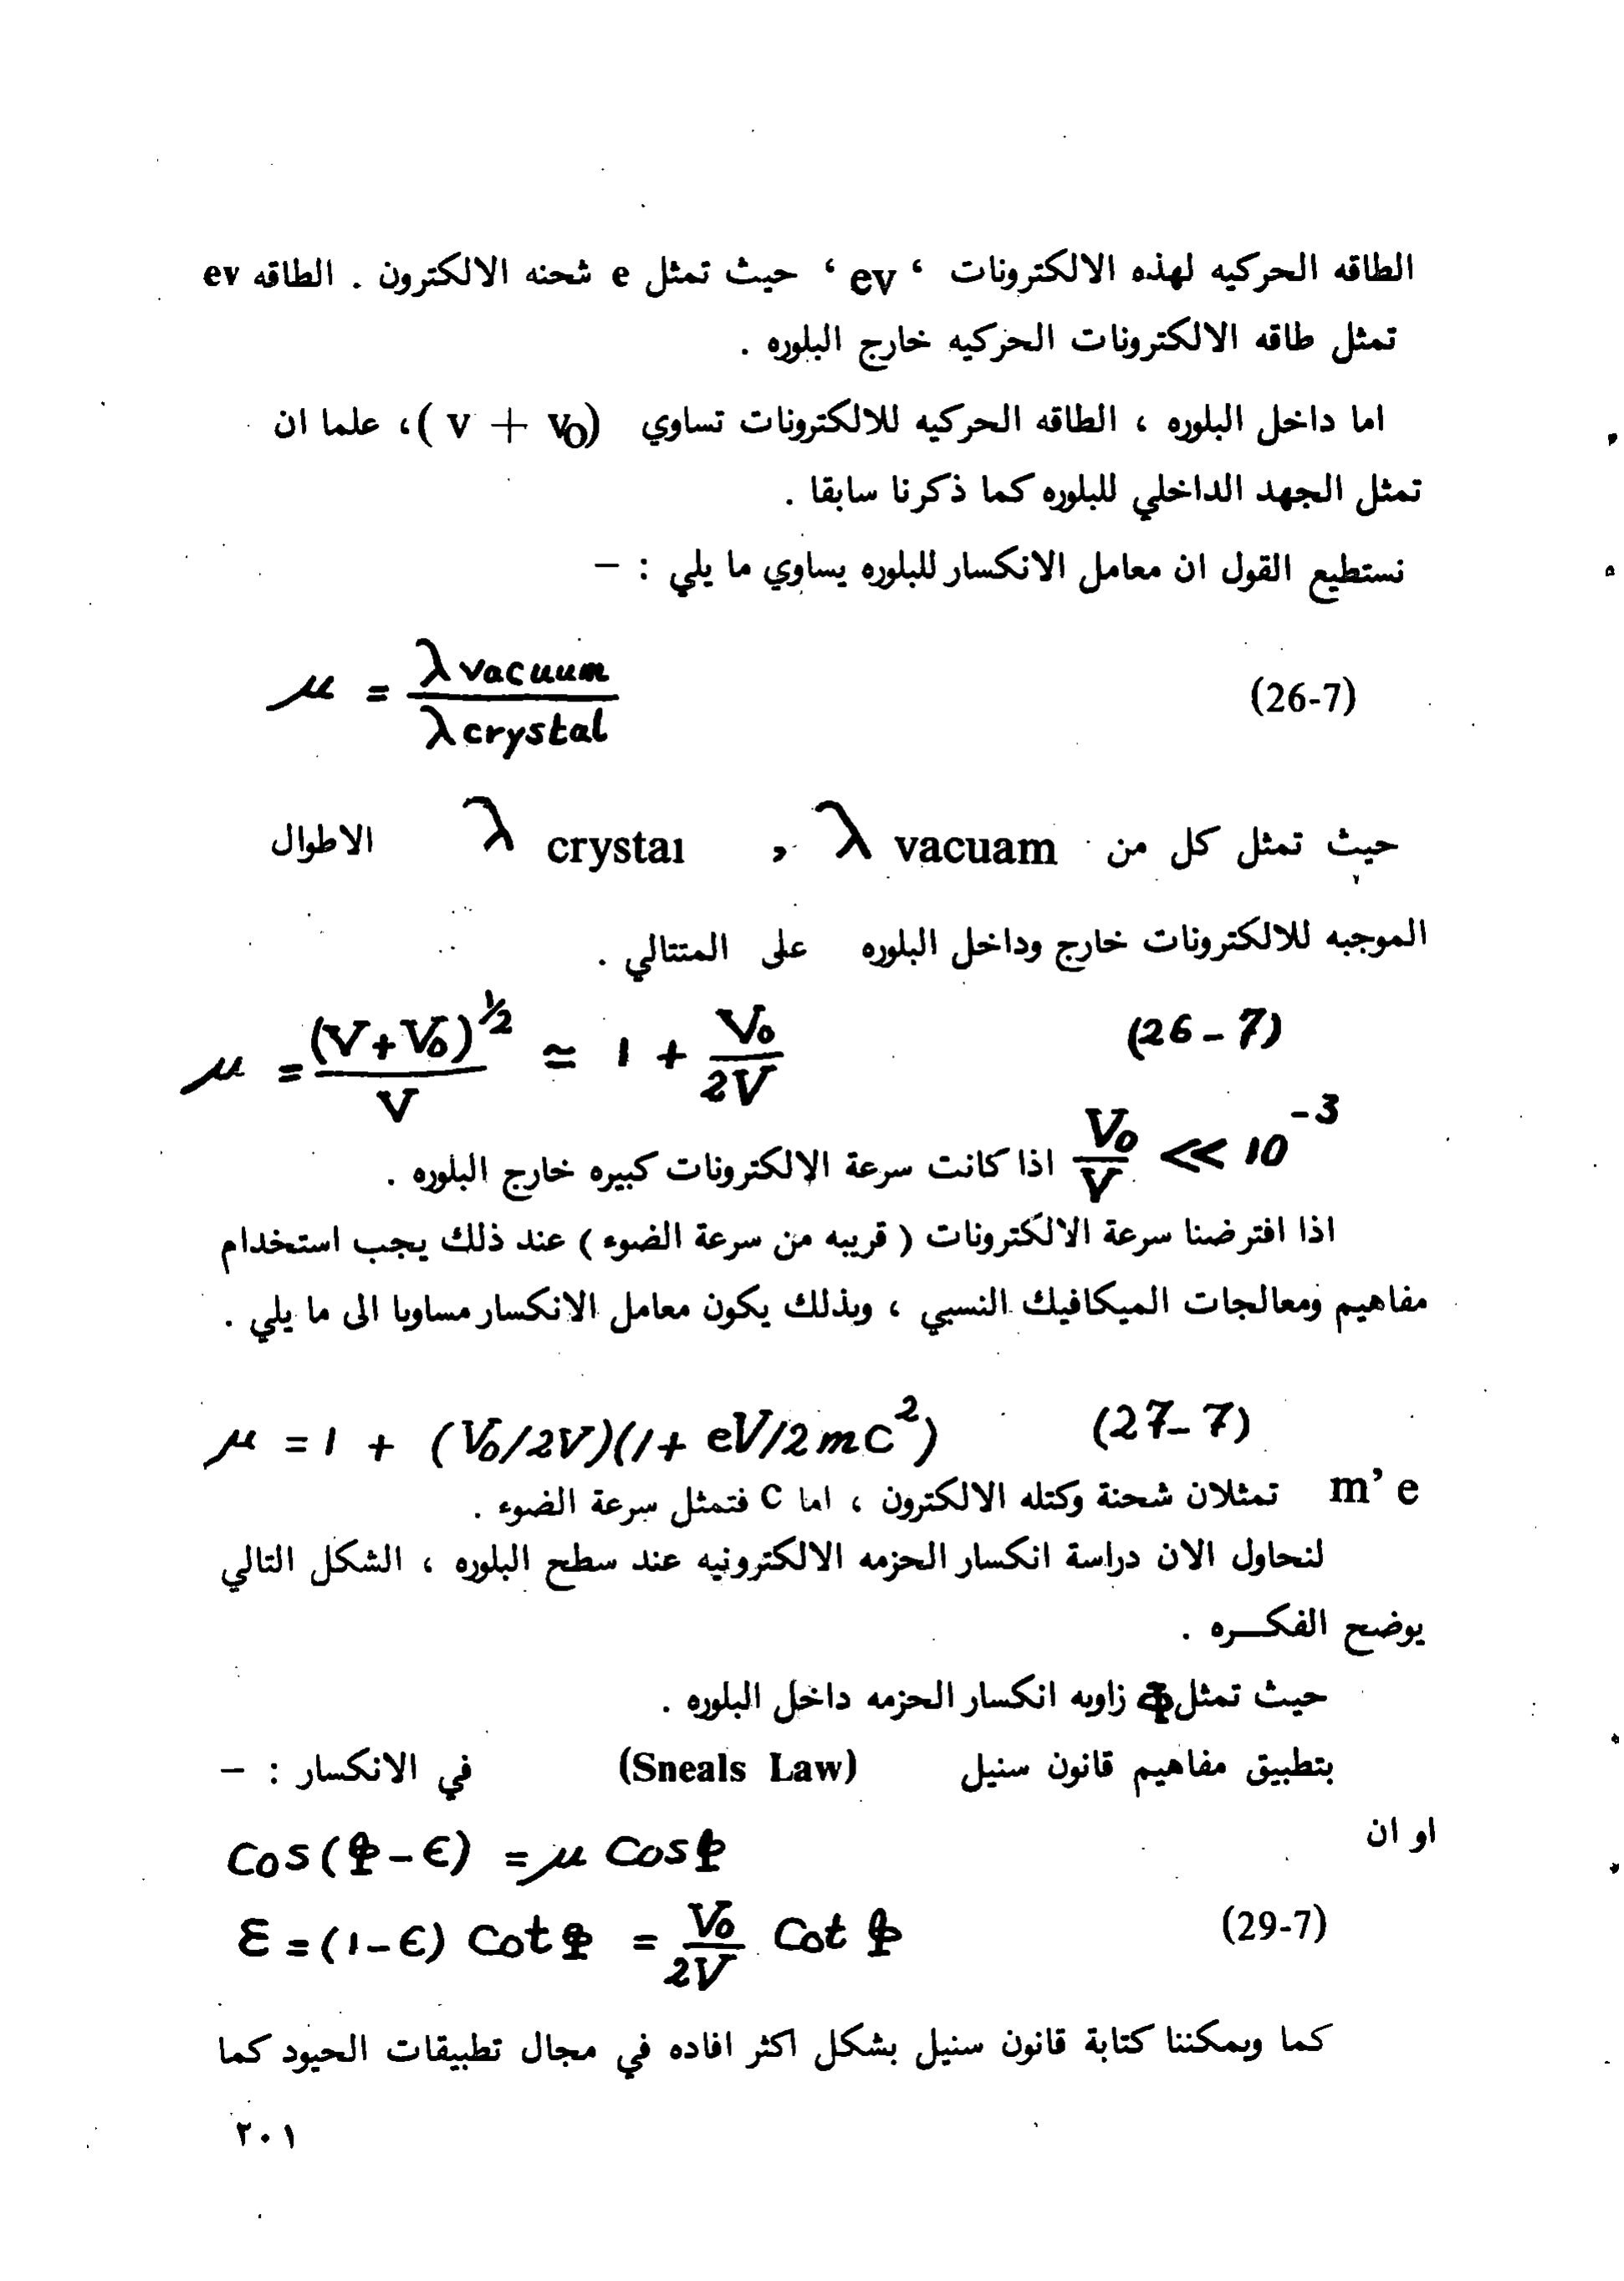 الطاقه الحركيه لهذه الالكترونات ‘ ev ‘ حيث تمثل e شحنه الالكترون . الطاقه ev
تمثل طاقه الالكترونات الحركيه خارج البلوره .
اما داخل البلوره ، الطاقه الحركيه للالكترونات تساوي (v + v₀)، علما ان
تمثل الجهد الداخلي للبلوره كما ذكرنا سابقا .
نستطيع القول ان معامل الانكسار للبلوره يساوي ما يلي : –
μ = λ vacuum / λ crystal (26-7)
حيث تمثل كل من λ vacuam , λ crystal الاطوال
الموجبه للالكترونات خارج وداخل البلوره على المتتالي .
μ = (V+V₀)^½ / V ≃ 1 + V₀/2V (26-7)
V₀/V << 10⁻³ اذا كانت سرعة الالكترونات كبيره خارج البلوره .
اذا افترضنا سرعة الالكترونات ( قريبه من سرعة الضوء ) عند ذلك يجب استخدام
مفاهيم ومعالجات الميكافيك النسبي ، وبذلك يكون معامل الانكسار مساويا الى ما يلي .
μ = 1 + (V₀/2V)(1+ eV/2mc²) (27-7)
m’ e تمثلان شحنة وكتله الالكترون ، اما C فتمثل سرعة الضوء .
لنحاول الان دراسة انكسار الحزمه الالكترونيه عند سطح البلوره ، الشكل التالي
يوضح الفكـــره .
حيث تمثل Φ زاويه انكسار الحزمه داخل البلوره .
بتطبيق مفاهيم قانون سنيل (Sneals Law) في الانكسار : –
او ان
Cos(Φ-ϵ) = μ CosΦ
Ɛ = (1-ϵ) CotΦ = V₀/2V Cot Φ (29-7)
كما ويمكننا كتابة قانون سنيل بشكل اكثر افاده في مجال تطبيقات الحيود كما
٢٠١